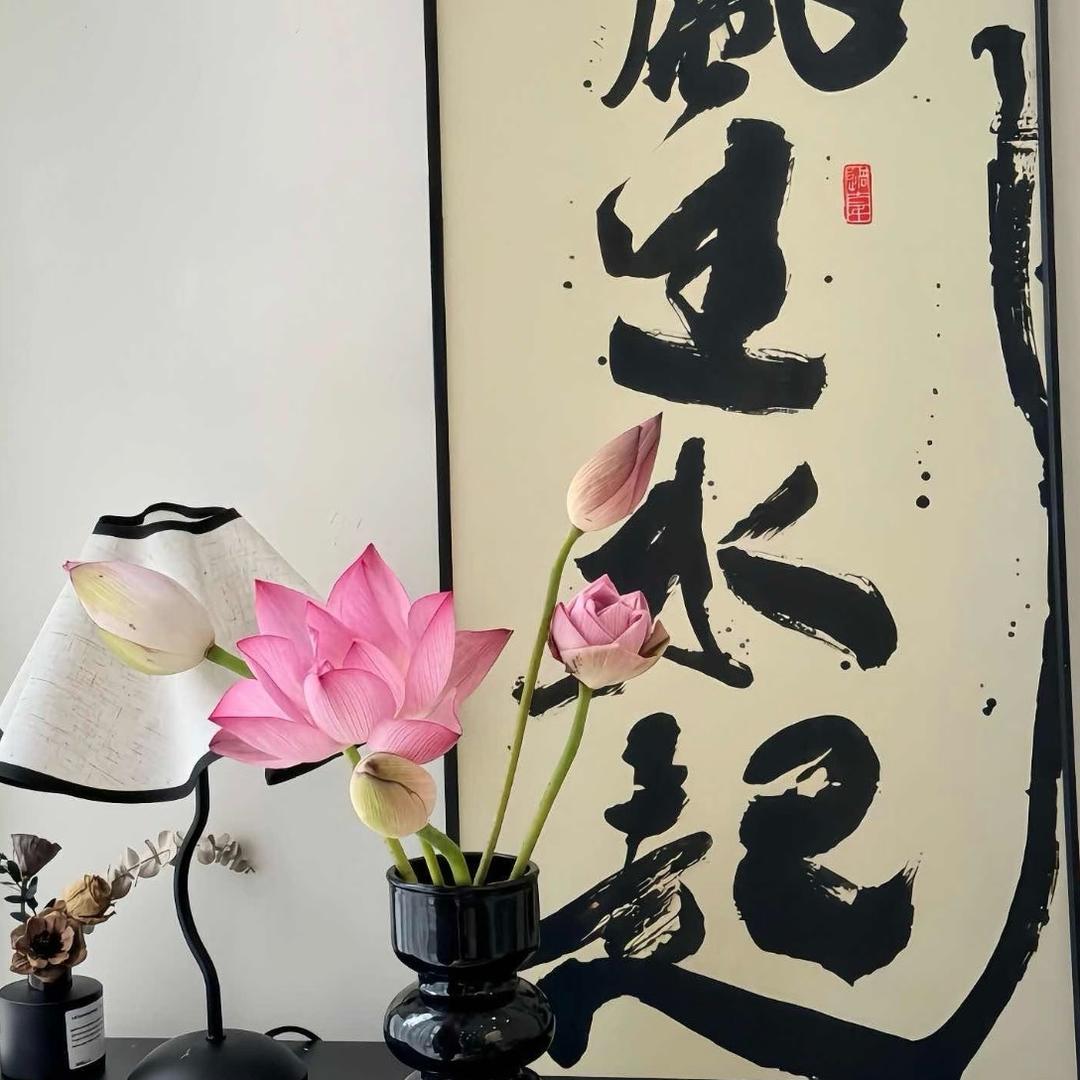 風生水起